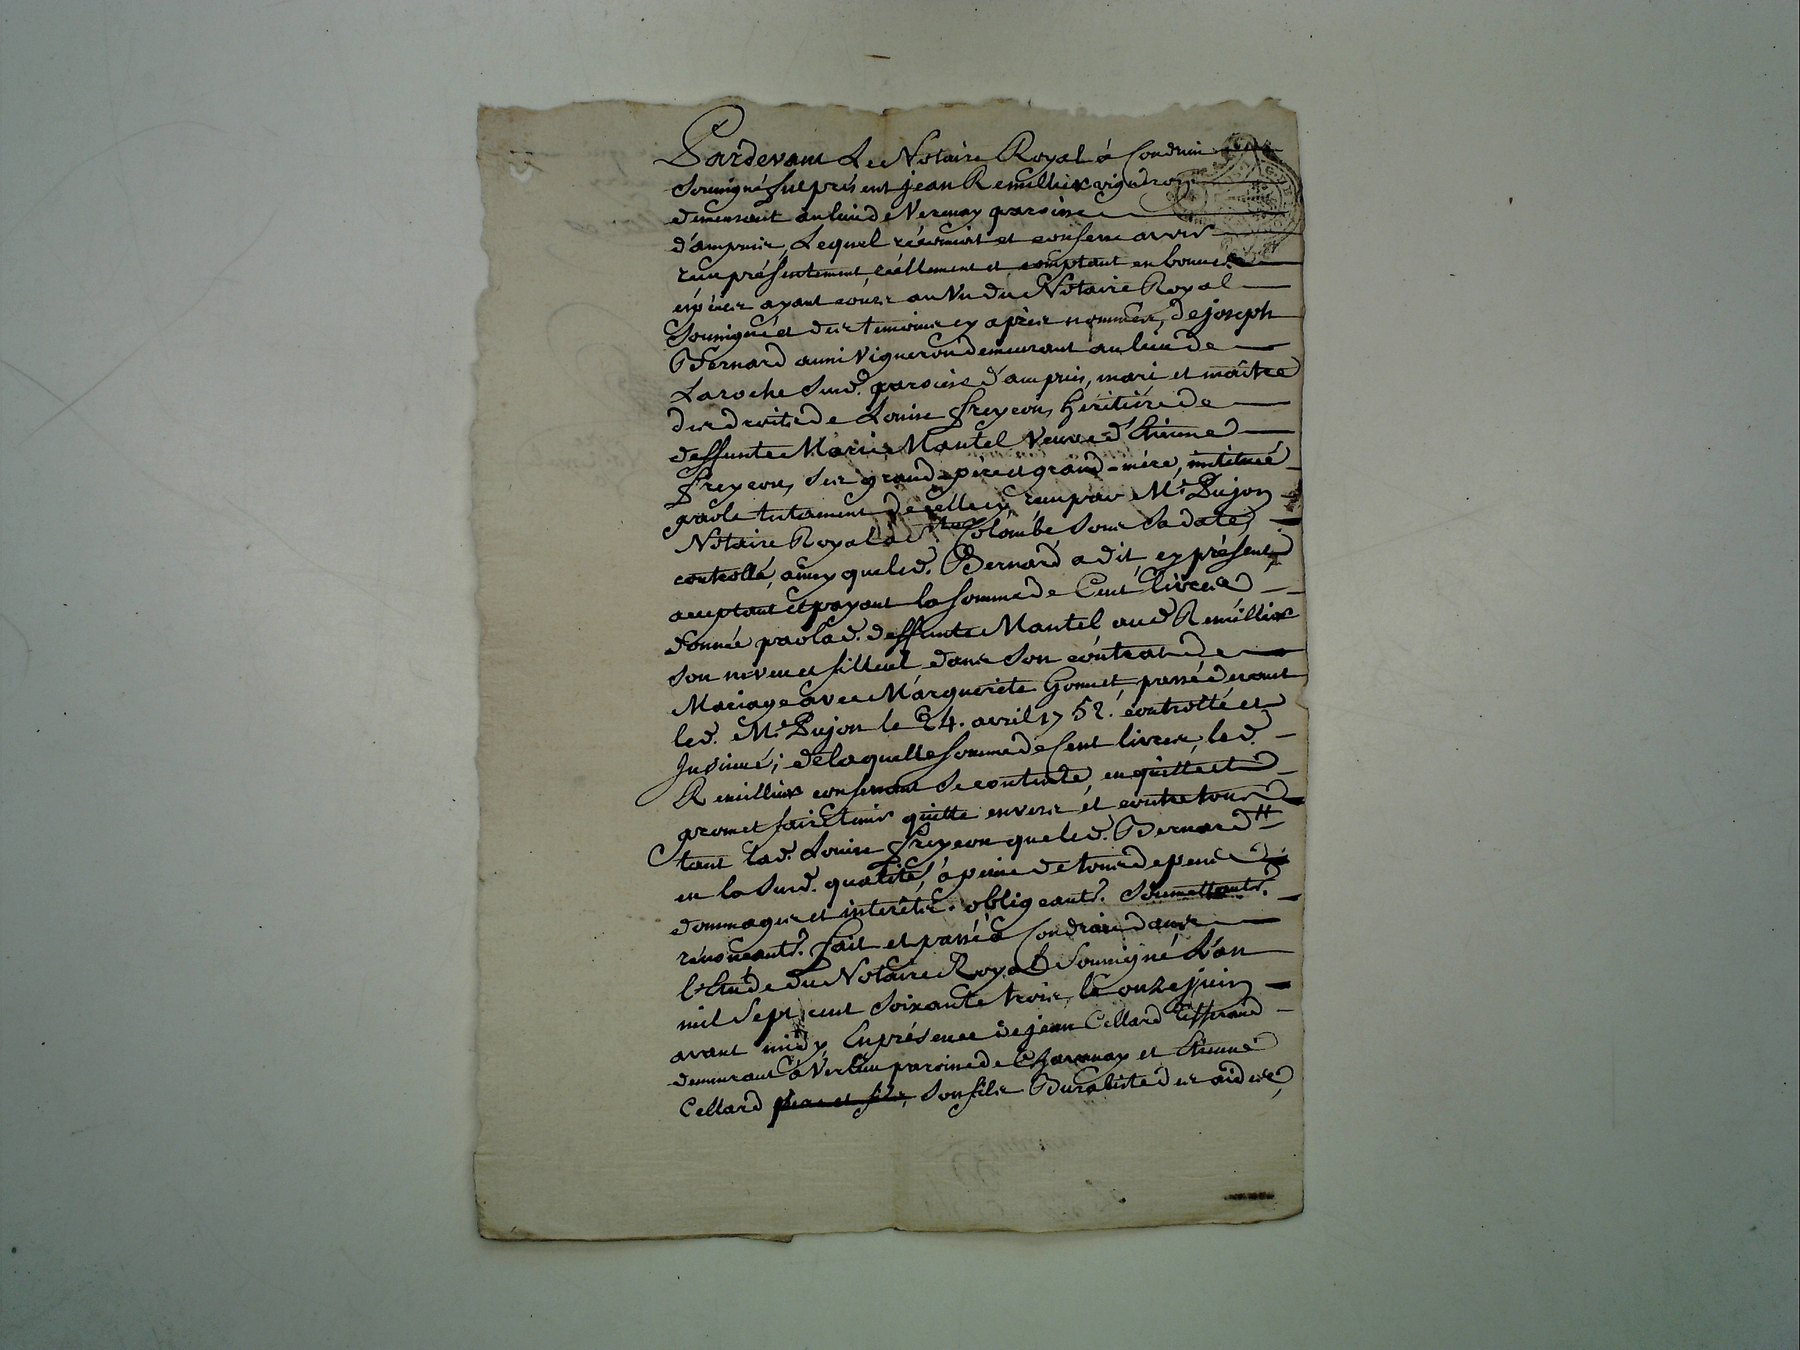 Pardevant Le Notaire Royal à Condrieu
Soussigné fut présent jean Remillieux vigneron
demeurant au lieu de Verenay paroisse
d'ampuis, Lequel reconnoit et confesse avoir
reçu présentement, réellement et comptant en bonnes
espèces ayant cours au Vu du Notaire Royal
Soussigné et des temoins cy après nommés, de joseph
Bernard aussi Vigneron demeurant au lieu de
Laroche Susd. paroisse d'ampuis, mari et maitre
des droits de Louise freycon, héritière de
deffunte Marie Mantel Veuve d'Etienne
freycon, ses grand-père et grand-mère, instituée
par le testament de celle cy reçu par Me. Pujon
Notaire Royal à Ste Colombe Sous Sa date,
controllé, ainsy que led. Bernard a dit, cy présent,
acceptant et payant la Somme de Cent livres
donnée par lad. deffunte Mantel aud. Remillieux
son neveu et filleul dans Son contrat de
Mariage avec Marguerite Gonnet passé devant
led. Me. Pujon le 24. avril 1752. controllé et
Insinué; de laquelle Somme de Cent livres, led.
Remillieux confessant Se contente, en quitte et
promet faire tenir quitte envers et contre tous
tant lad. Louise freycon que led. Bernard
en la Susd. qualité, à peine de tous depens
dommages et intérêts. obligeants. Soumettants.
rénonceants. fait et passé à Condrieu dans
l'Etude du Notaire Royal Soussigné L'an
mil Sept cent Soixante trois, le onze juin
avant midy En présence de jean Cellard tisserand
demeurant à Verlieu paroisse de Chavanay et Etienne
Cellard père et fils, Son fils Buraliste des aides,